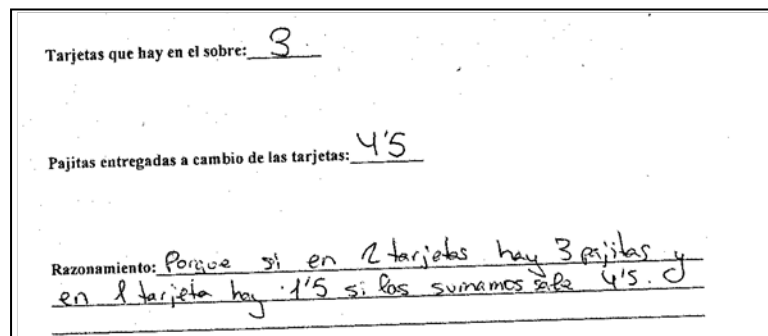 Tarjetas que hay en el sobre: 3
Pajitas entregadas a cambio de las tarjetas: 4'5
Razonamiento: Porque si en 2 tarjetas hay 3 pajitas y
en 1 tarjeta hay 1'5 si los sumamos sale 4'5.